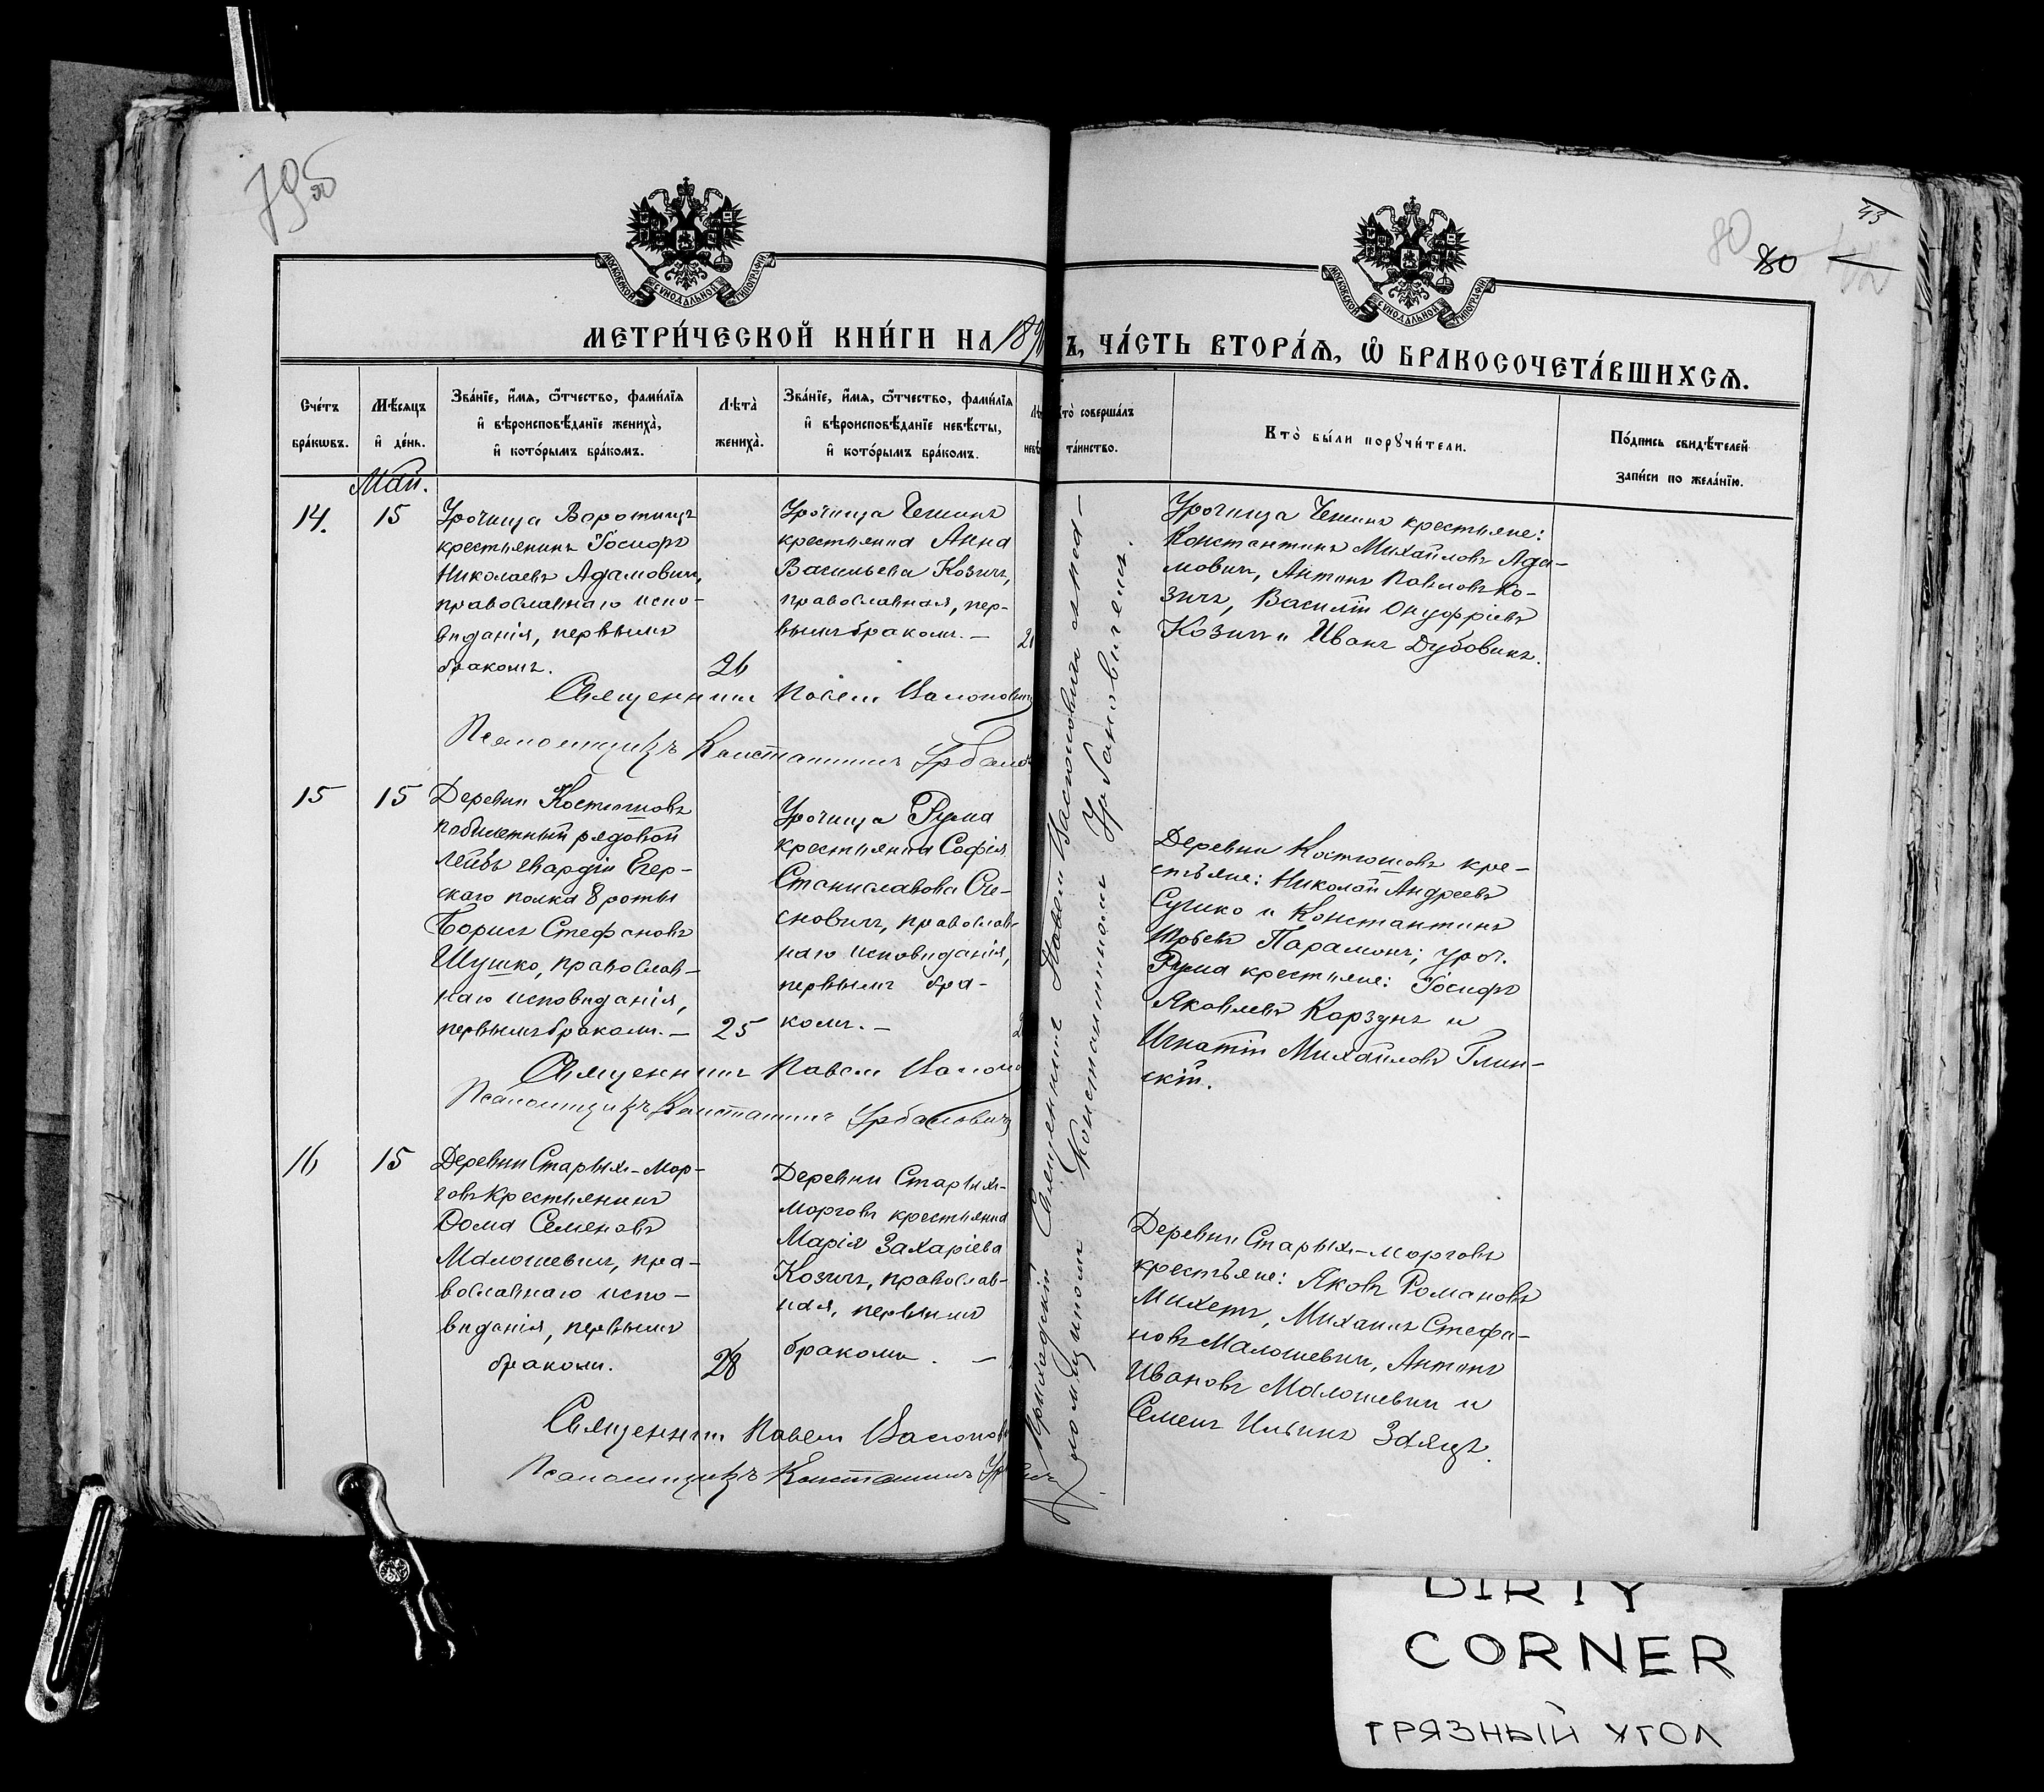 79 об
43
80
80
МОСКОВСКОЙ СѴНОДАЛЬНОЙ ТИПОГРАФІИ
МОСКОВСКОЙ СѴНОДАЛЬНОЙ ТИПОГРАФІИ
МЕТРИ́ЧЕСКОЙ КНИ́ГИ НА 189
Ъ, ЧА́СТЬ ВТОРА́Ѧ, Ѽ БРАКОСОЧЕТА́ВШИХСѦ.
Сче́тъ бра́кѡвъ.
Мѣ́сяцъ и҆ де́нь.
Зва́нїе, и҆́мя, ѻ҆́тчество, фами́лїя и҆ вѣроисповѣ́данїе жениха̀, и҆ кото́рымъ бра́комъ.
Лѣта̀ жениха̀.
Зва́нїе, и҆́мя, ѻ҆́тчество, фами́лїя и҆ вѣроисповѣ́данїе невѣ́сты, и҆ кото́рымъ бра́комъ.
Лѣ
невѣ
Кто̀ соверша́лъ
та́инство.
Кто̀ бы́ли порꙋчи́тели.
По́дпись свидѣ́телей
за́писи по жела́нїю.
Май.
14.
15
Урочища Воротищъ
крестьянинъ Іосифъ
Николаевъ Адамовичъ,
православнаго испо-
вѣданія, первымъ
бракомъ.
26
Урочища
крестьянка Анна
Васильева Козичъ,
православная, пер-
вымъ бракомъ. —
2
Урочища крестьяне:
Константинъ Михайловъ Ада-
мовичъ, Антонъ Павловъ Ко-
зичъ, Василій Онуфріевъ
Козичъ и Иванъ Дубовикъ.
Священникъ Павелъ
Псаломщикъ Константинъ Урбано
15
15
Деревни Костюшовъ
побилетный рядовой
Лейбъ гвардіи Егер-
скаго полка 8 роты
Борисъ Стефановъ
Шушко, православ-
наго исповѣданія,
первымъ бракомъ. —
25
Урочища Рума
крестьянка Софія
Станиславова Сте-
сновичъ, православ-
наго исповѣданія,
первымъ бра-
комъ. —
2
Деревни Костюшовъ кре-
стьяне: Николай Андреевъ
Сушко и Константинъ
Юрьевъ Парамонъ; уроч.
Рума крестьяне: Іосифъ
Яковлевъ Корзунъ и
Игнатій Михайловъ Глин-
скій.
Священникъ Павелъ
Псаломщикъ Константинъ Урбановичъ
16
15
Деревни Старыхъ-Мор-
говъ крестьянинъ
Ѳома Семеновъ
Малошевичъ, пра-
вославнаго испо-
вѣданія, первымъ
бракомъ.
28
Деревни Старыхъ-
Морговъ крестьянка
Марія Захаріева
Козичъ, православ-
ная, первымъ
бракомъ. —
Деревни Старыхъ-Морговъ
крестьяне: Яковъ Романовъ
Михетъ, Михаилъ Стефа-
новъ Малошевичъ, Антонъ
Ивановъ Малошевичъ и
Семенъ Ильинъ Заяцъ.
Священникъ Павелъ
Псаломщикъ Константинъ Ур
Приходскій Священникъ Павелъ съ пса-
ломщикомъ Константиномъ Урбановичемъ.
DIRTY
CORNER
ГРЯЗНЫЙ УГОЛ